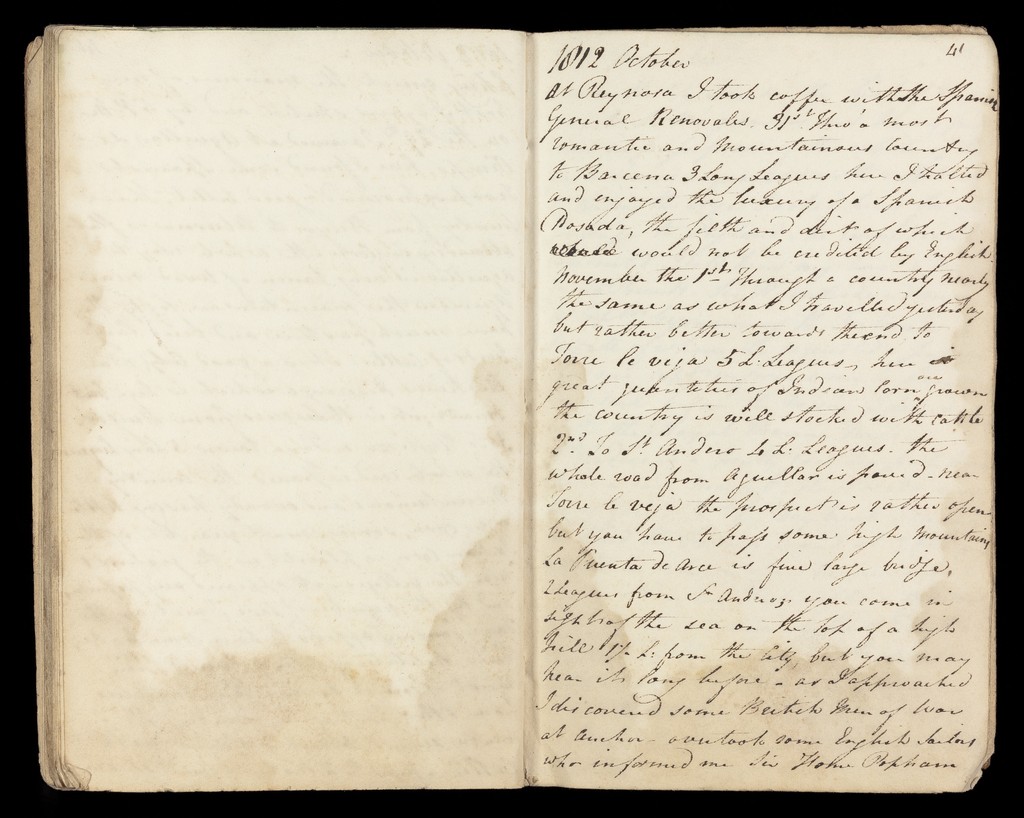 1812 October 41
at Reynosa I took coffee with the Spanish
General Renovales. 31st Thro' a most
romantic and mountainous Country
to Barcena 3 Long Leagues here I halted
and enjoyed the luxury of a Spanish
Posada, the filth and dirt of which
would not be credited by English.
November the 1st Through a country nearly
the same as what I travelled yesterday
but rather better towards the end, to
Torre le veja 5 L. Leagues, here
great quantities of Indian Corn are grown
the country is well stocked with cattle
2nd. To St. Andero 4 L. Leagues. the
whole road from Aguellar is paved - near
Torre le veja the prospect is rather open
but you have to pass some high mountains
La Puenta de Arce is fine large bridge,
2 Leagues from St Andero, you come in
sight of the sea on the top of a high
hill L: from the City, but you may
hear it long before - as I approached
I discovered some British Men of War
at anchor - overtook some English Sailors
who informed me Sir Home Popham